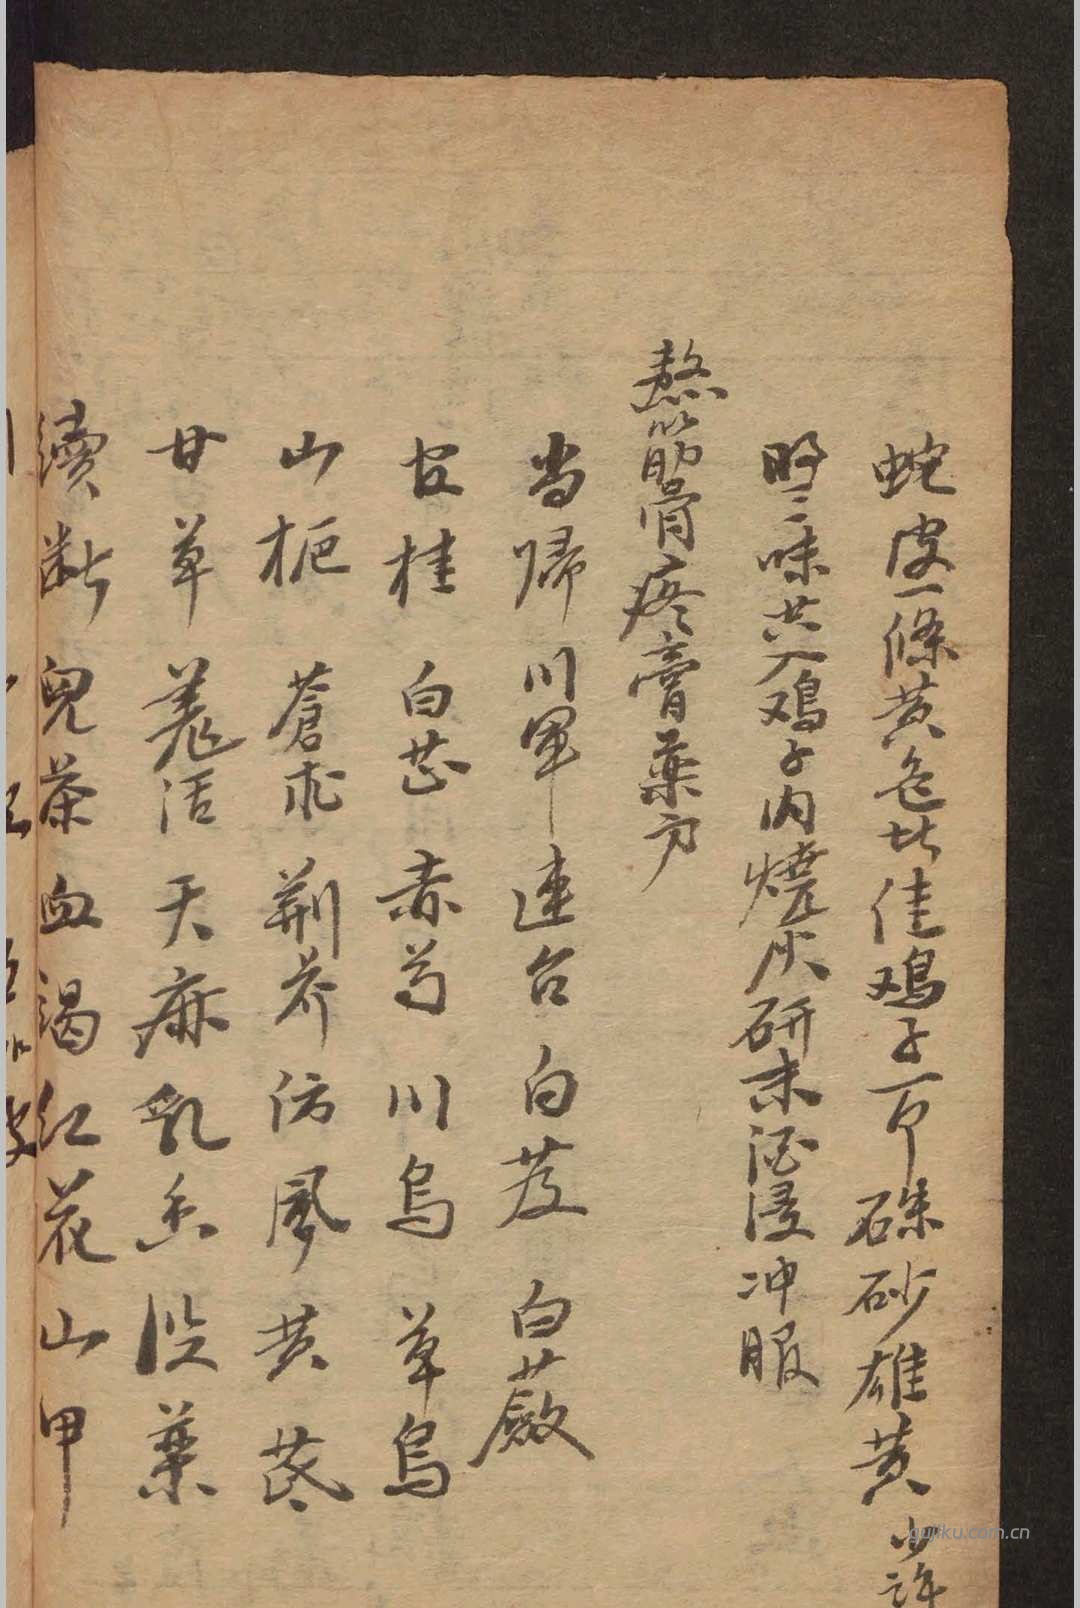 蛇皮一條黄色皆佳鸡子一个硃砂雄黄少許
三味共入鸡子内燒灰研末酒浸冲服
熬筋骨疼膏藥方
当歸 川軍 連召 白芨 白蘞
官桂 白芷 赤芍 川烏 草烏
山栀 蒼朮 荆芥 防風 黄芪
甘草 羗活 天麻 乳香 没薬
續断 兒茶 血竭 红花 山甲
gujiku.com.cn